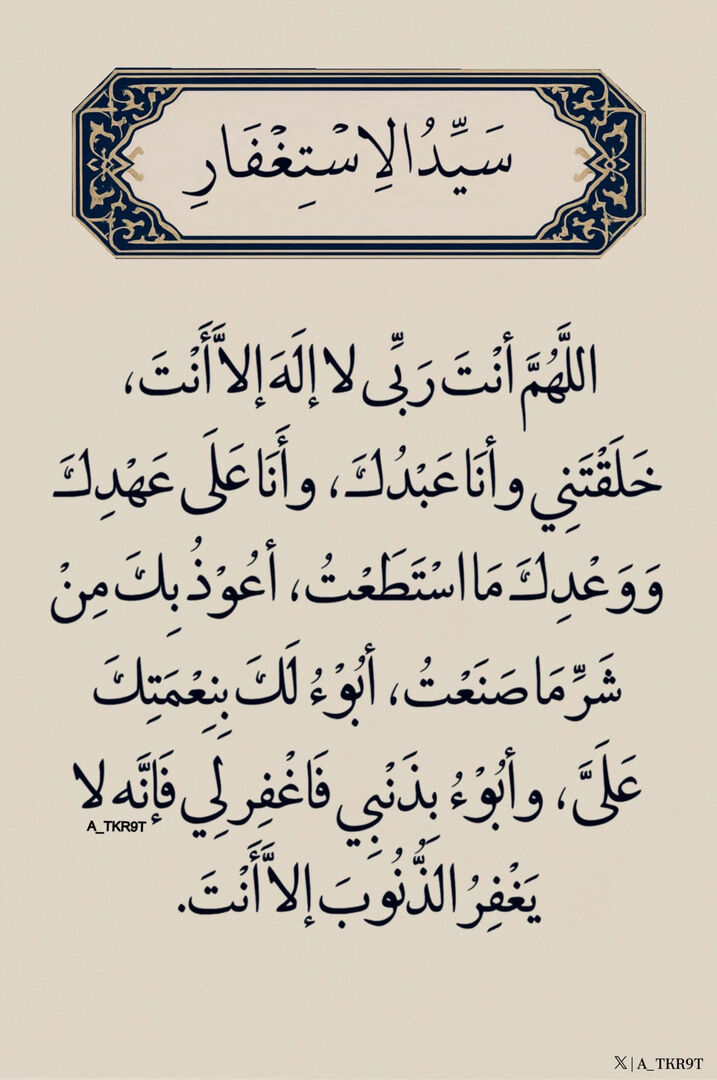 سَيِّدُ الِاسْتِغْفَارِ
اللَّهُمَّ أنْتَ رَبِّى لا إلَهَ إلاَّ أَنْتَ،
خَلَقْتَنِي وأنَا عَبْدُكَ، وأَنَا عَلَى عَهْدِكَ
وَوَعْدِكَ مَا اسْتَطَعْتُ، أعُوْذُ بِكَ مِنْ
شَرِّ مَا صَنَعْتُ، أبُوْءُ لَكَ بِنِعْمَتِكَ
عَلَىَّ، وأبُوْءُ بِذَنْبِي فَاغْفِر لِي فَإنَّه لا
A_TKR9T
يَغْفِرُ الذُّنُوبَ إلاَّ أَنْتَ.
𝕏 | A_TKR9T